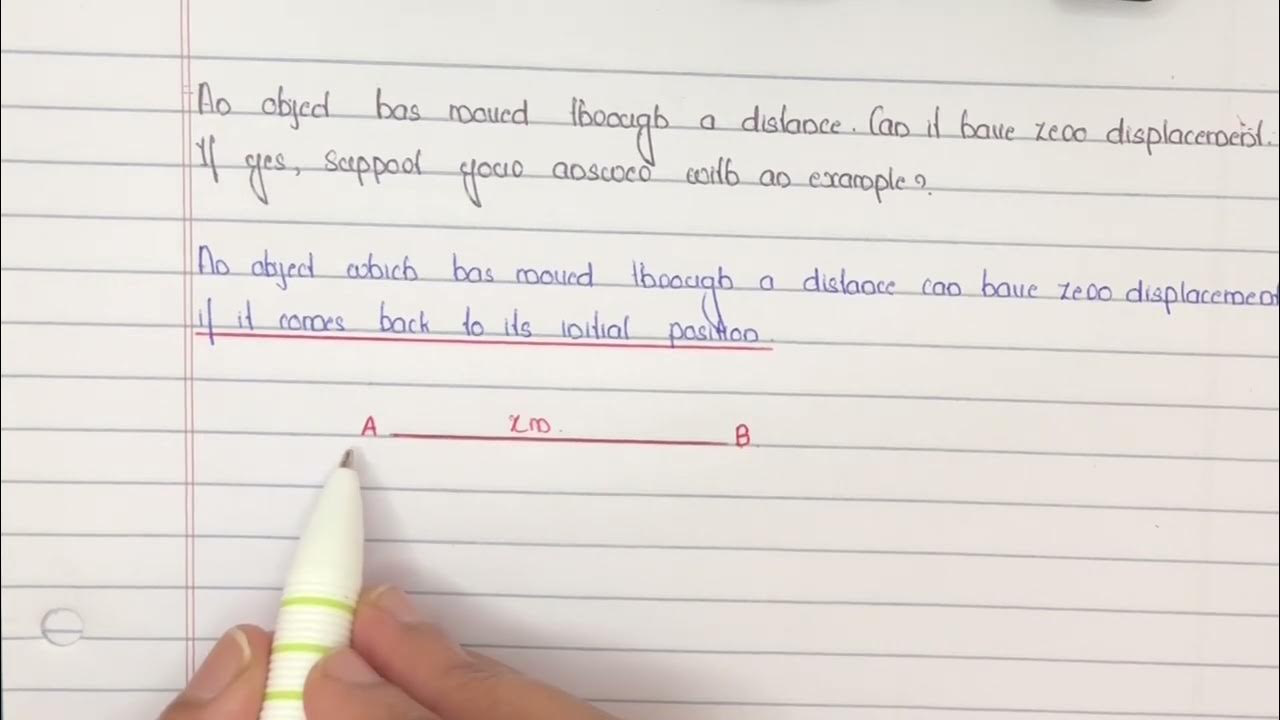 An object has moved through a distance. Can it have zero displacement.
If yes, support your answer with an example?
An object which has moved through a distance can have zero displacement
if it comes back to its initial position.
A xm. B